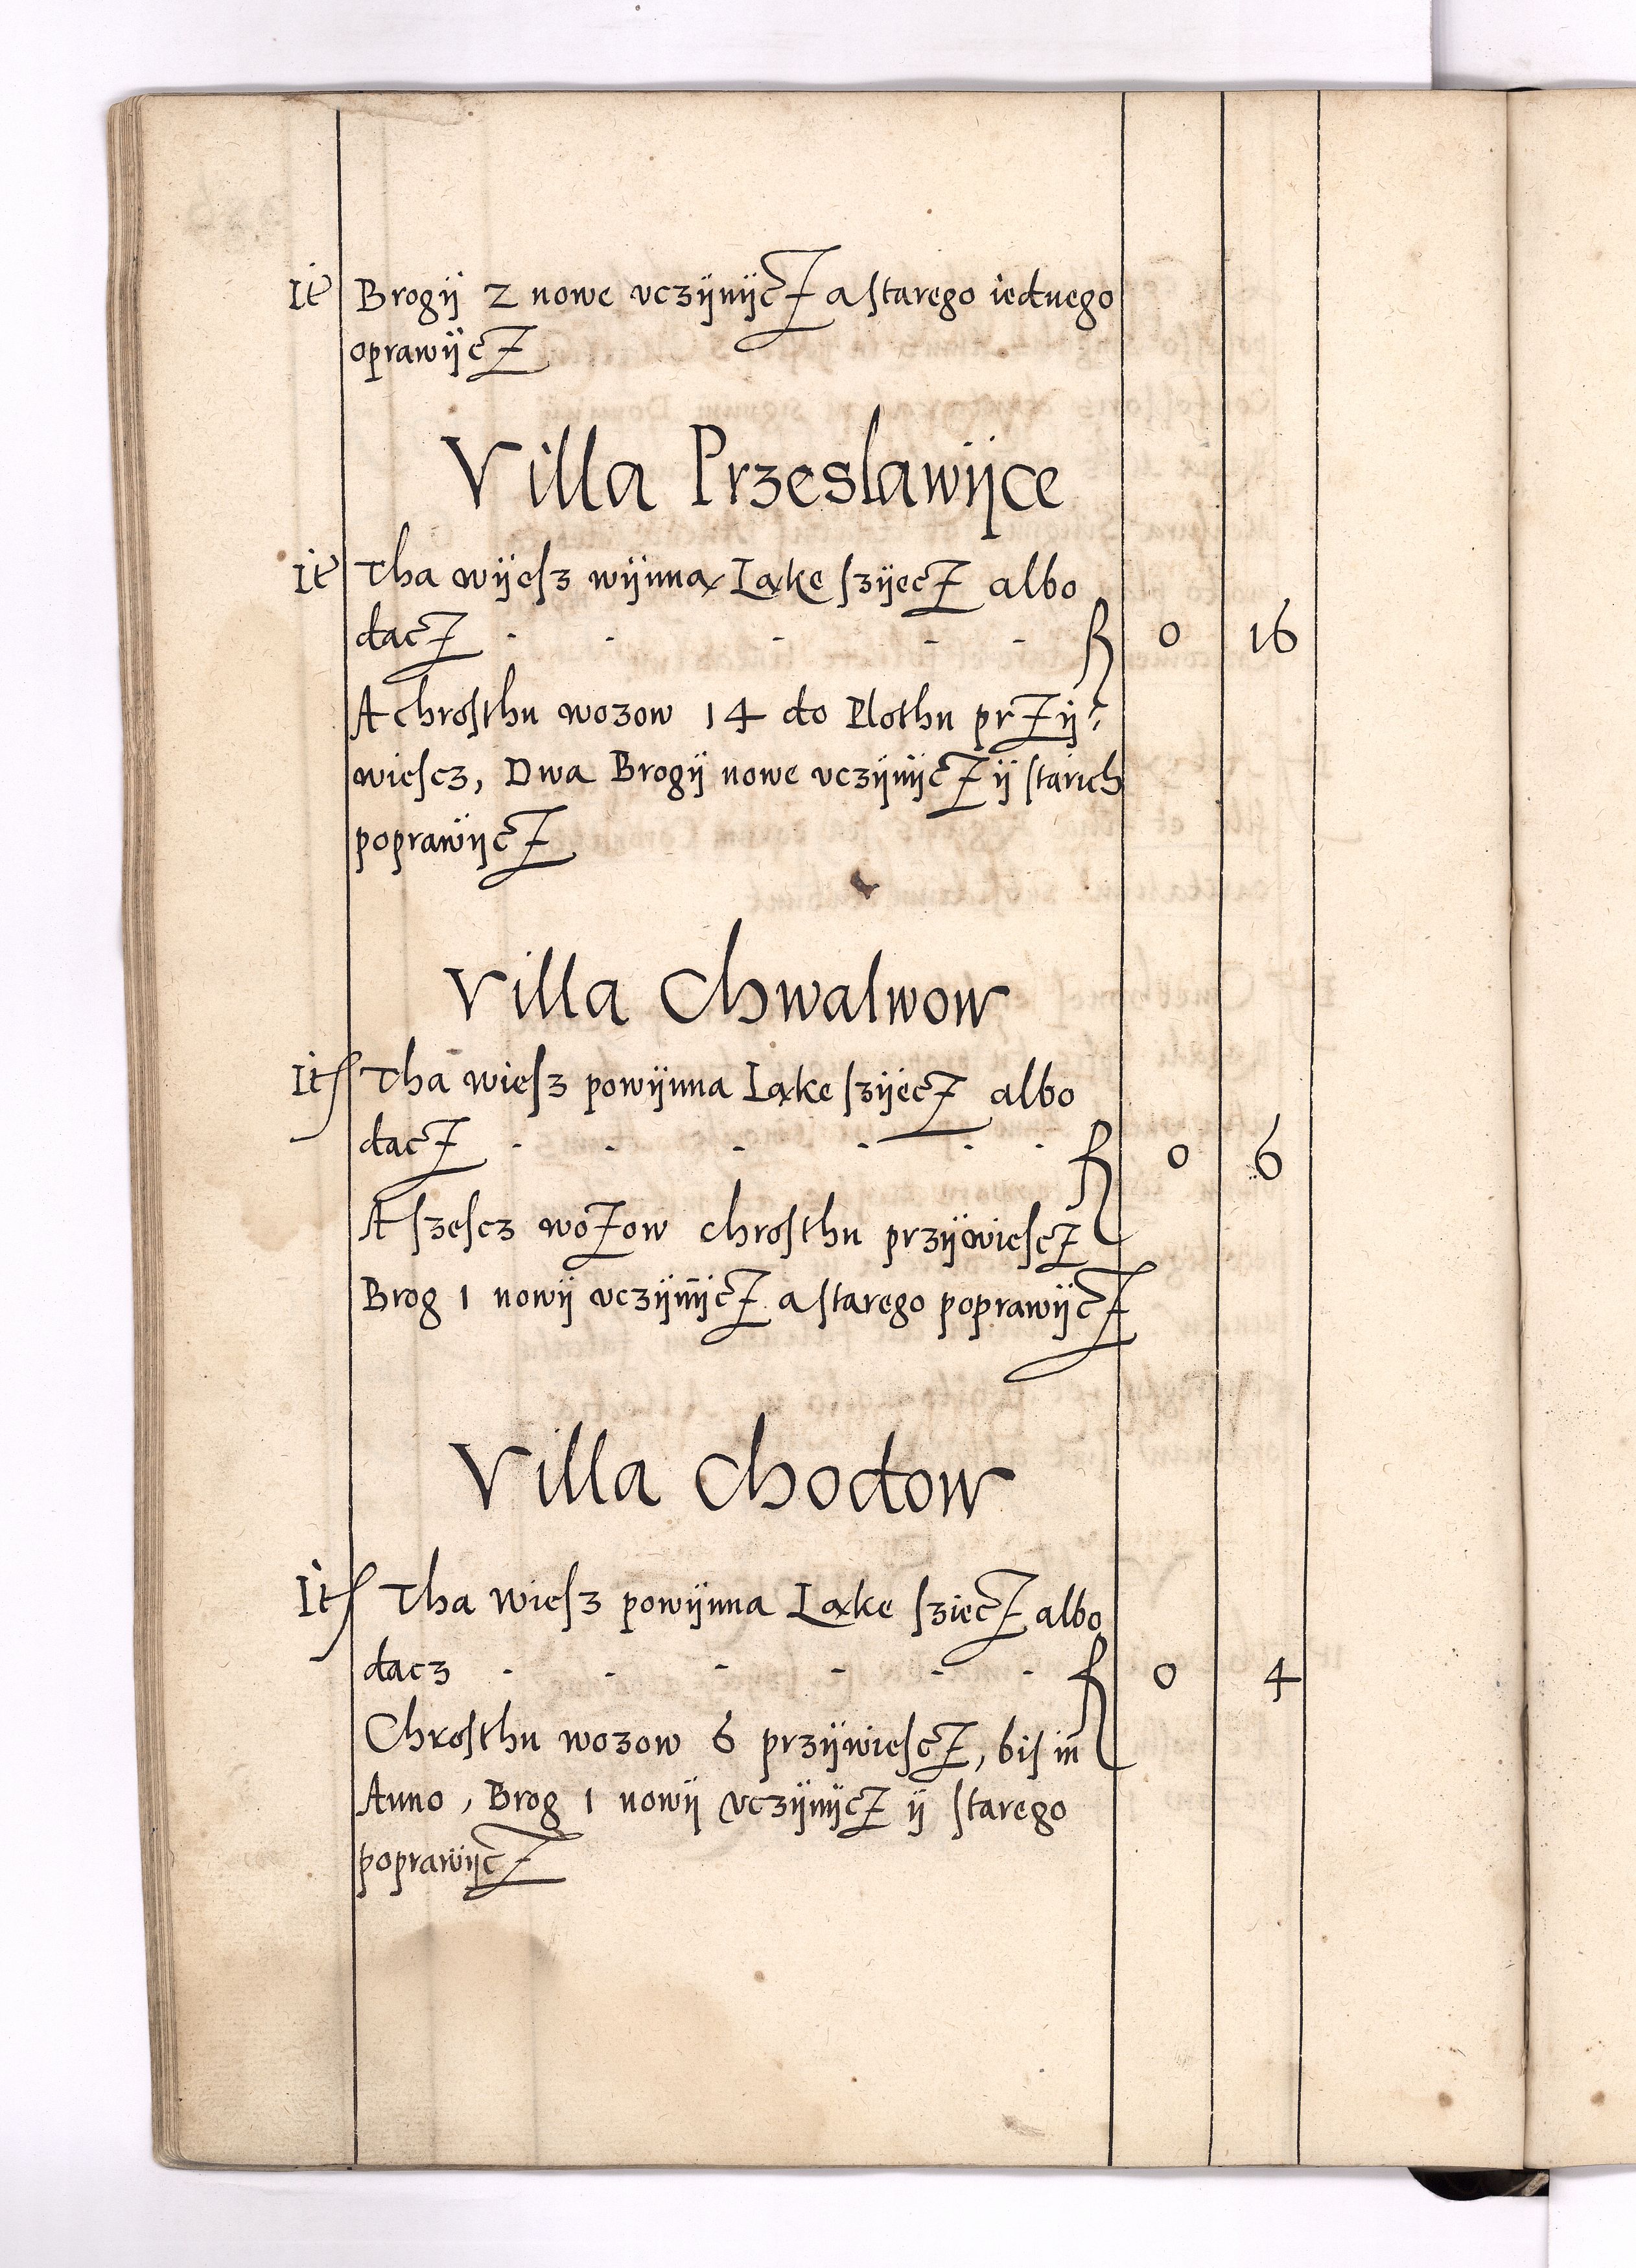 It Brogij 2 nowe vczijnijcz a starego iednego
oprawijcz
Villa Przeslawijce
It Tha wijesz wijnna Lake szijecz albo
dacz - - - - - R 0 16
A chrosthu wozow 14 do Plothu przij-
wiescz, Dwa Brogij nowe vczijnijcz ij starich
poprawijcz
Villa Chwalwow
It Tha wiesz powijnna Lake szijecz albo
dacz - - - - - - R 0 6
A szescz wozow chrosthu przijwiescz
Brog 1 nowij vczijnijcz a starego poprawijcz
Villa Chodow
It Tha wiesz powijnna Lake sziecz albo
dacz - - - - - - R 0 4
Chrosthu wozow 6 przijwiescz, bis in
Anno, Brog 1 nowij vczijnijcz ij starego
poprawijcz